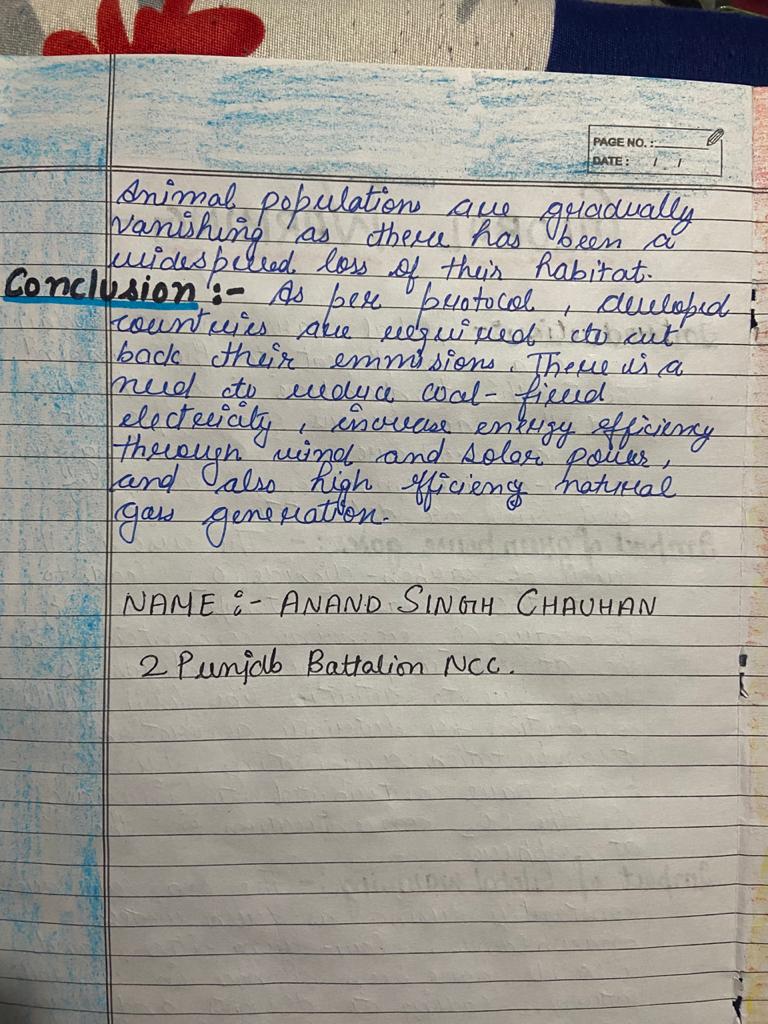 PAGE NO. :
DATE : / /
Animal populations are gradually
vanishing as there has been a
widespered loss of their habitat.
Conclusion :- As per protocol, developed
countries are required to cut
back their emmisions. There is a
need to reduce coal-fired
electricity, increase energy efficiency
through wind and solar power,
and also high efficiency natural
gas generation.
NAME :- ANAND SINGH CHAUHAN
2 Punjab Battalion NCC.